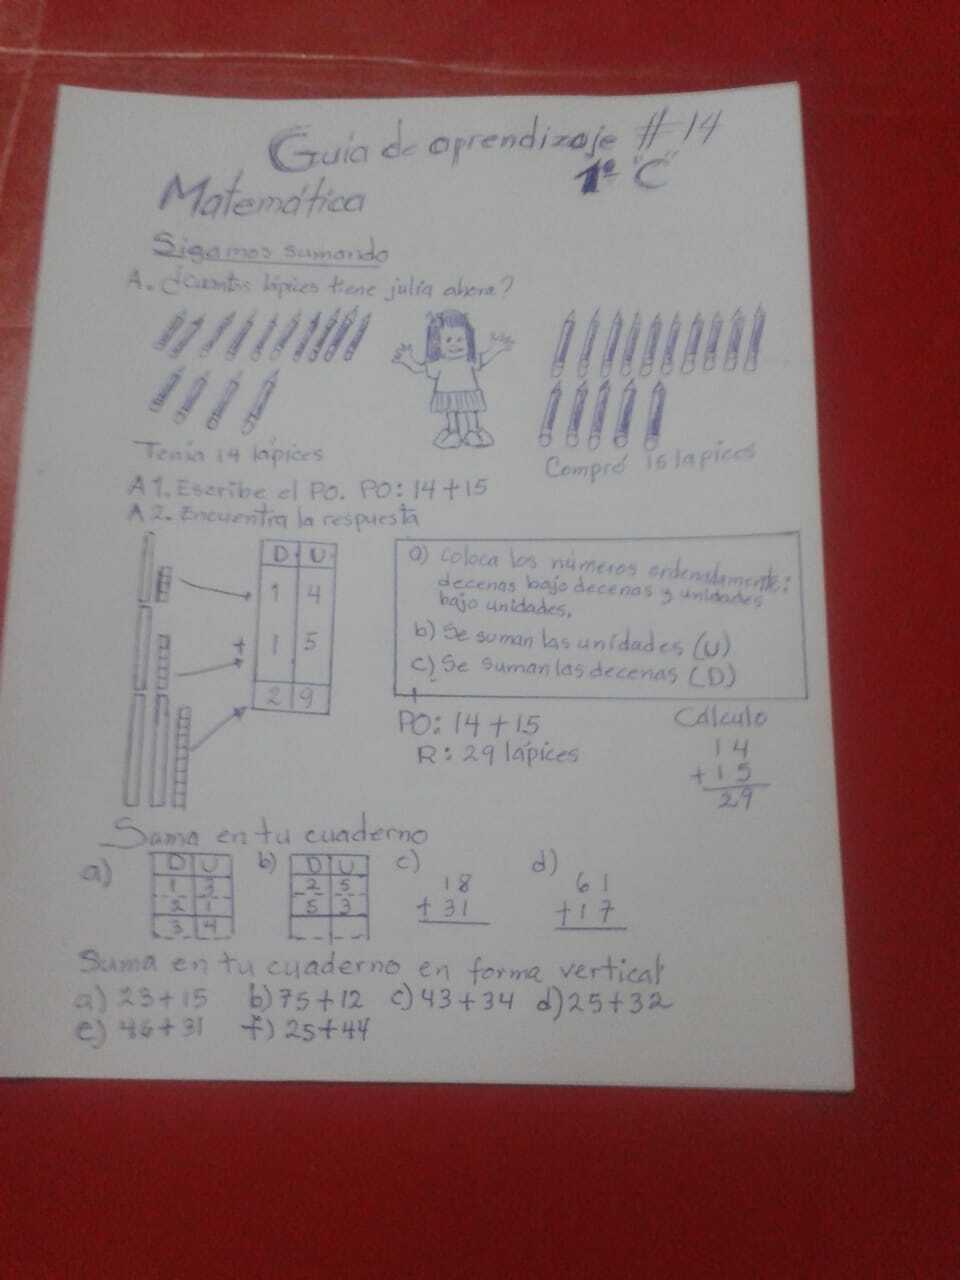 Guía de aprendizaje #14
1º "C"
Matemática
Sigamos sumando
A. ¿Cuantos lápices tiene julia ahora?
Tenia 14 lápices
Compró 15 lapices
A1. Escribe el PO. PO: 14+15
A2. Encuentra la respuesta
D U
1 4
+ 1 5
2 9
a) Coloca los números ordenadamente:
decenas bajo decenas y unidades
bajo unidades.
b) Se suman las unidades (U)
c) Se suman las decenas (D)
PO: 14+15
R: 29 lápices
Cálculo
14
+15
29
Suma en tu cuaderno
a)
D U
1 3
2 1
3 4
b)
D U
2 5
5 3
c)
18
+ 31
d)
61
+17
Suma en tu cuaderno en forma vertical
a) 23+15 b) 75+12 c) 43+34 d) 25+32
e) 46+31 f) 25+44